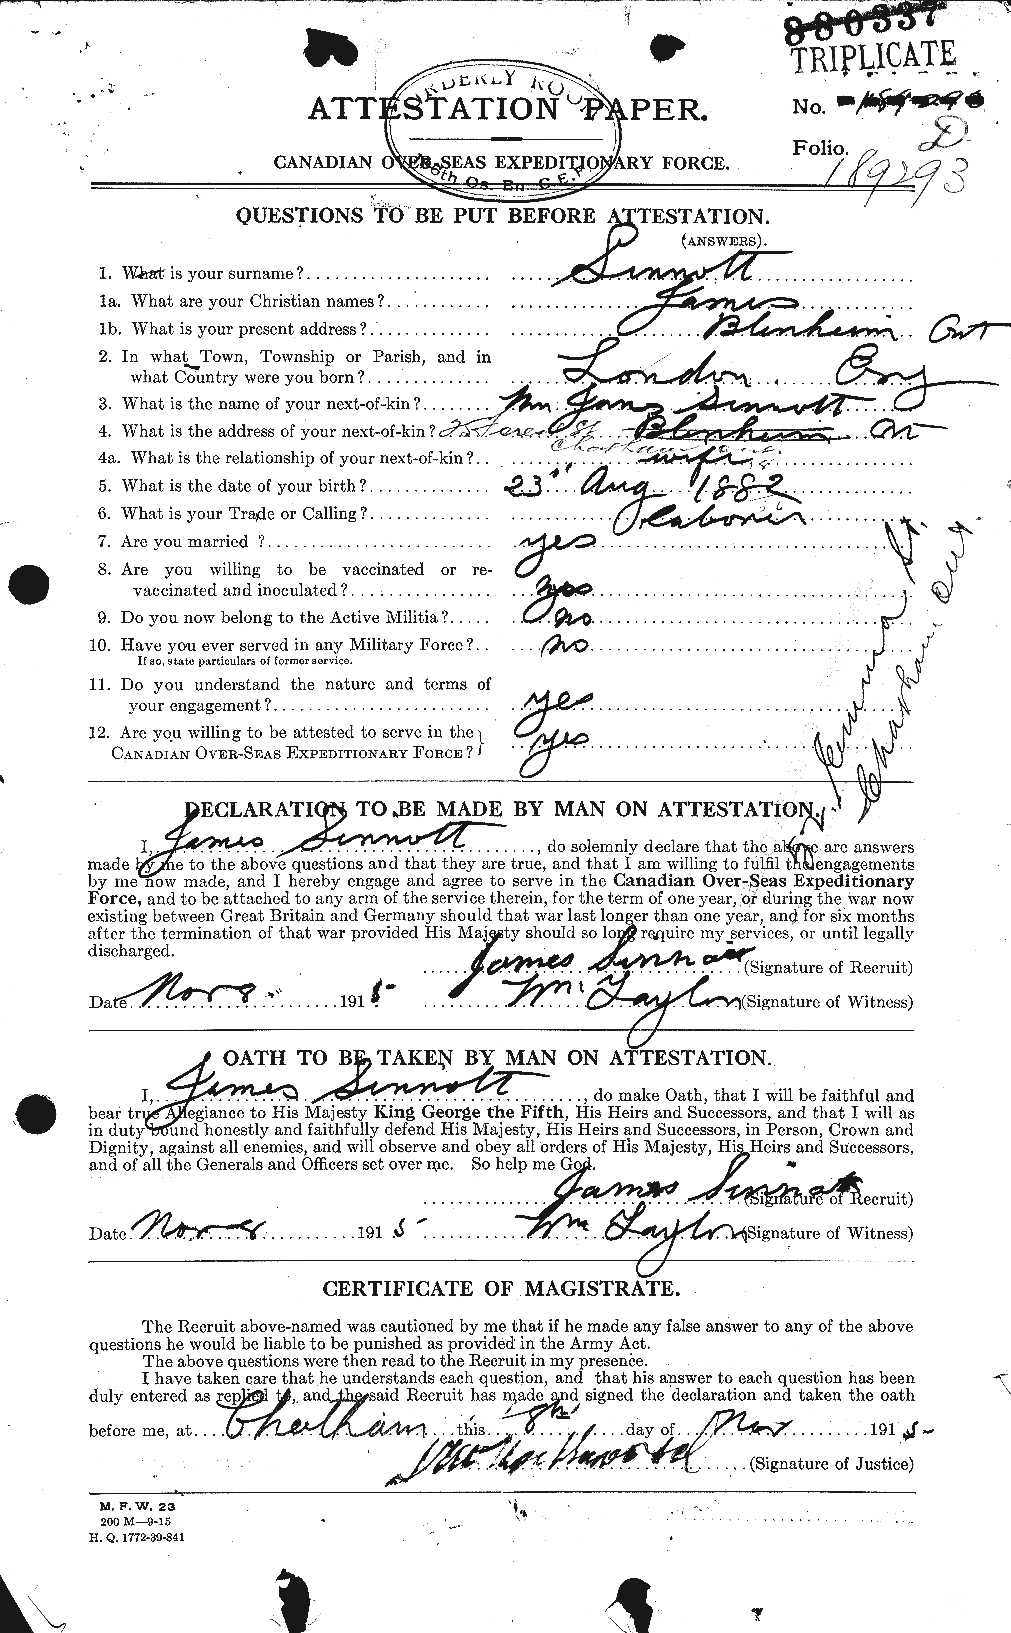 880337
TRIPLICATE
No.
ORDERLY ROOM
ATTESTATION PAPER.
Folio. D
189293
CANADIAN OVER-SEAS EXPEDITIONARY FORCE.
Os. Bn. C.E.F.
QUESTIONS TO BE PUT BEFORE ATTESTATION.
(ANSWERS).
1. What is your surname? Sinnott
1a. What are your Christian names? James
1b. What is your present address? Blenheim Ont
2. In what Town, Township or Parish, and in
what Country were you born? London Eng
3. What is the name of your next-of-kin? Mrs Jane Sinnott
4. What is the address of your next-of-kin? Blenheim Ont
Chatham Ont.
4a. What is the relationship of your next-of-kin? wife
5. What is the date of your birth? 23rd Aug 1882
6. What is your Trade or Calling? Laborer
7. Are you married ? yes
8. Are you willing to be vaccinated or re-
vaccinated and inoculated? yes
9. Do you now belong to the Active Militia? no
10. Have you ever served in any Military Force? no
If so, state particulars of former service.
11. Do you understand the nature and terms of
your engagement? yes
12. Are you willing to be attested to serve in the
CANADIAN OVER-SEAS EXPEDITIONARY FORCE? yes
St.
Chatham Ont.
DECLARATION TO BE MADE BY MAN ON ATTESTATION.
I, James Sinnott, do solemnly declare that the above are answers
made by me to the above questions and that they are true, and that I am willing to fulfil the engagements
by me now made, and I hereby engage and agree to serve in the Canadian Over-Seas Expeditionary
Force, and to be attached to any arm of the service therein, for the term of one year, or during the war now
existing between Great Britain and Germany should that war last longer than one year, and for six months
after the termination of that war provided His Majesty should so long require my services, or until legally
discharged.
James Sinnott (Signature of Recruit)
Date Nov 8 1915 Wm Taylor (Signature of Witness)
OATH TO BE TAKEN BY MAN ON ATTESTATION.
I, James Sinnott, do make Oath, that I will be faithful and
bear true Allegiance to His Majesty King George the Fifth, His Heirs and Successors, and that I will as
in duty bound honestly and faithfully defend His Majesty, His Heirs and Successors, in Person, Crown and
Dignity, against all enemies, and will observe and obey all orders of His Majesty, His Heirs and Successors,
and of all the Generals and Officers set over me. So help me God.
James Sinnott (Signature of Recruit)
Date Nov 8 1915 Wm Taylor (Signature of Witness)
CERTIFICATE OF MAGISTRATE.
The Recruit above-named was cautioned by me that if he made any false answer to any of the above
questions he would be liable to be punished as provided in the Army Act.
The above questions were then read to the Recruit in my presence.
I have taken care that he understands each question, and that his answer to each question has been
duly entered as replied to, and the said Recruit has made and signed the declaration and taken the oath
before me, at Chatham this 8th day of Nov 1915
(Signature of Justice)
M. F. W. 23
200 M—9-15
H. Q. 1772-39-841